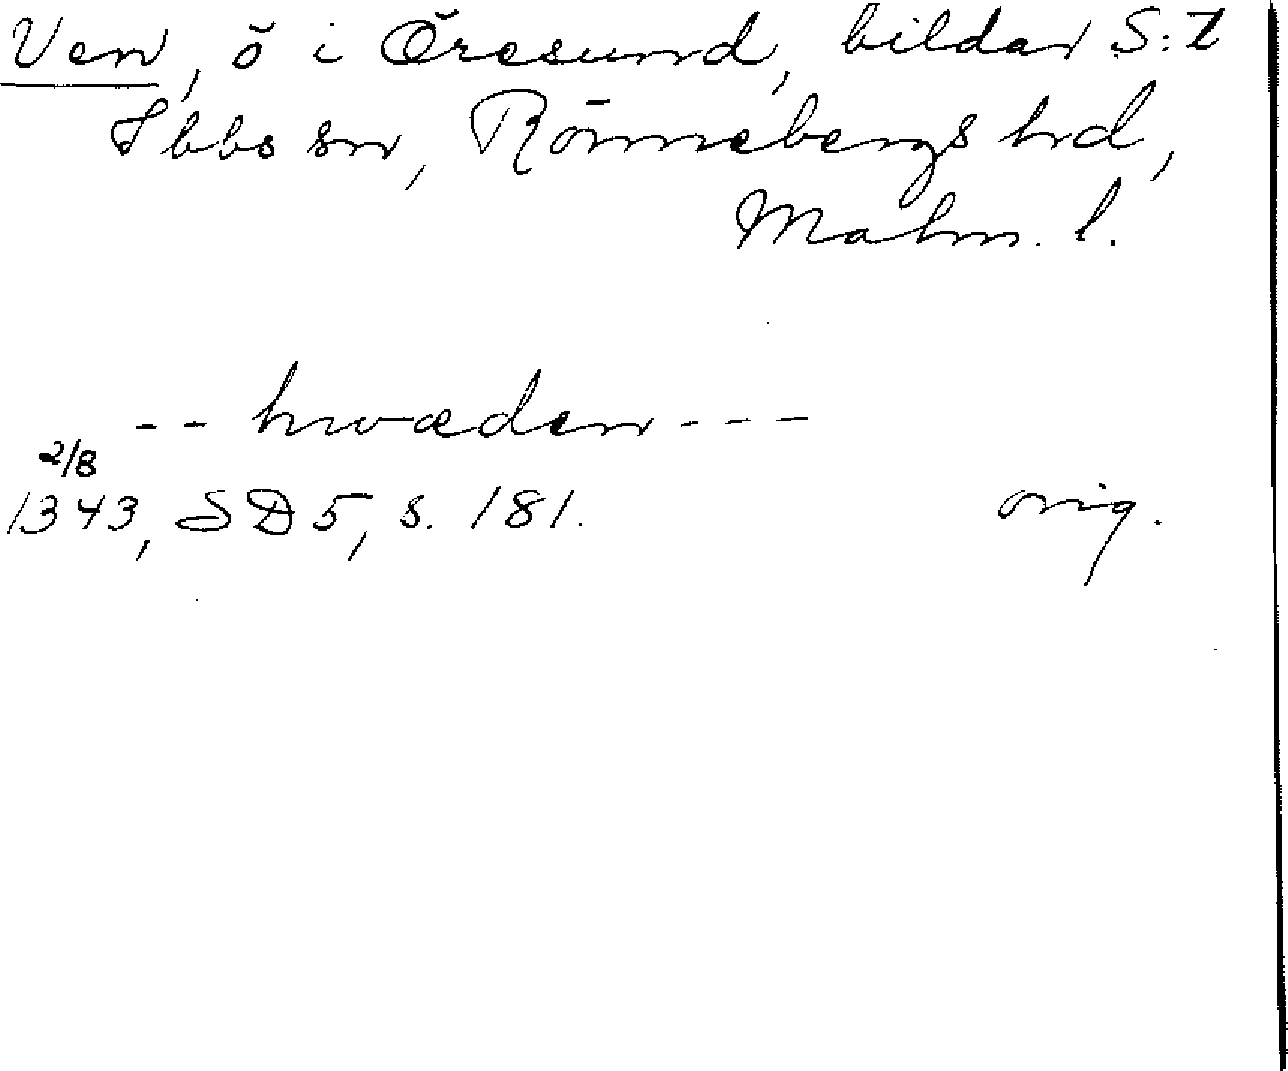 Ven, ö i Öresund, bildar S:t
Ibbs sn, Rönnebergs hd,
Malm. l.
-- hwæden ---
2/8
1343, SD 5, s. 181. orig.